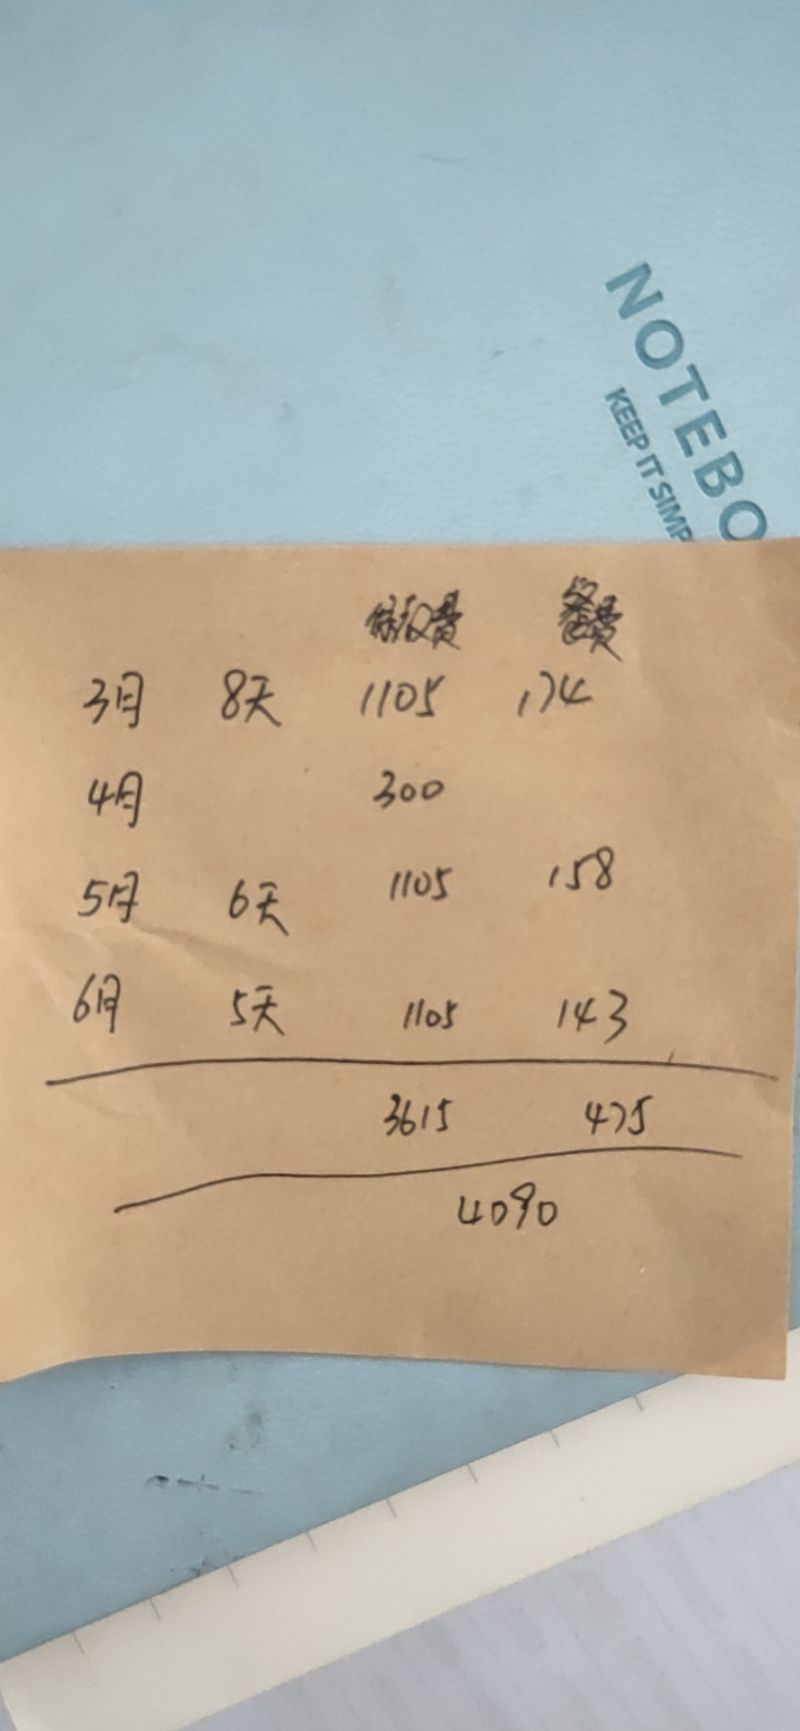 NOTEBO
KEEP IT SIMP
保教费 餐费
3月 8天 1105 174
4月 300
5月 6天 1105 158
6月 5天 1105 143
3615 475
4090